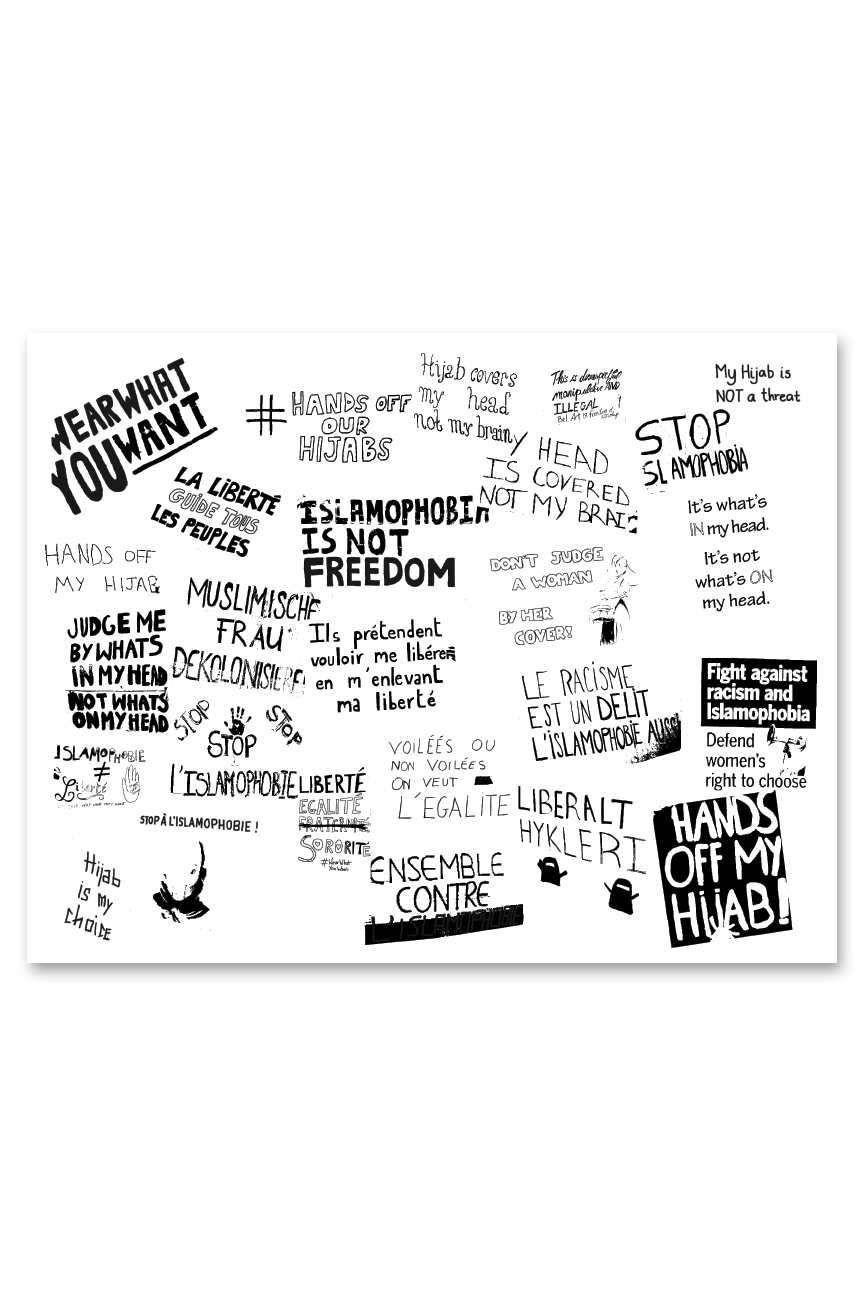 WEAR WHAT
YOU WANT
#HANDS OFF
OUR
HIJABS
Hijab covers
my head
not my brain
This is disrespectful
manipulative AND
ILLEGAL !
My Hijab is
NOT a threat
STOP
SLAMOPHOBIA
Y HEAD
IS COVERED
NOT MY BRAI
LA LIBERTÉ
GUIDE TOUS
LES PEUPLES
ISLAMOPHOBIA
IS NOT
FREEDOM
It's what's
IN my head.
It's not
what's ON
my head.
HANDS OFF
MY HIJAB
DON'T JUDGE
A WOMAN
BY HER
COVER!
MUSLIMISCHE
FRAU
DEKOLONISIERE
JUDGE ME
BY WHATS
IN MY HEAD
NOT WHATS
ON MY HEAD
Ils prétendent
vouloir me libérer
en m'enlevant
ma liberté
LE RACISME
EST UN DELIT
L'ISLAMOPHOBIE AUSSI
Fight against
racism and
Islamophobia
Defend
women's
right to choose
STOP
STOP
STOP
L'ISLAMOPHOBIE
ISLAMOPHOBIE
≠
Liberté
VOILÉÉS OU
NON VOILÉES
ON VEUT
L'EGALITE
LIBERTÉ
EGALITÉ
FRATERNITÉ
SORORITÉ
#WearWhat
YouWant
STOP À L'ISLAMOPHOBIE !
LIBERALT
HYKLERI
HANDS
OFF MY
HIJAB!
Hijab
is my
choice
ENSEMBLE
CONTRE
L'ISLAMOPHOBIE